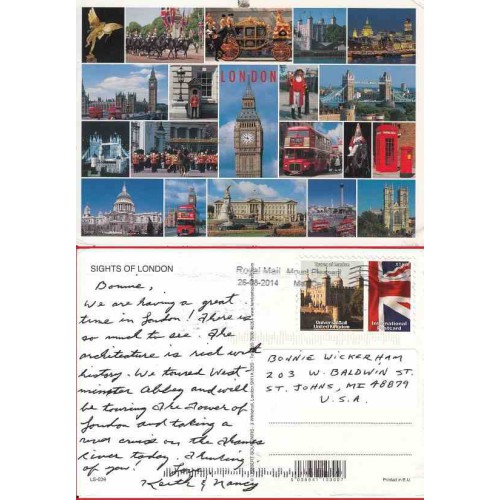 LONDON
SIGHTS OF LONDON
Royal Mail
Mount Pleasant
26-08-2014
Tower of London
Universal Mail
United Kingdom
International
Postcard
Bonnie,
We are having a great
time in London! There is
so much to see. The
architecture is rich with
history. We toured West
minster Abbey and will
be touring the Tower of
London and taking a
river cruise on the Thames
River today. Thinking
of you! Love
Keith & Nancy
BONNIE WICKERHAM
203 W. BALDWIN ST.
ST. JOHNS, MI 48879
U.S.A.
LS-039
Printed in E.U.